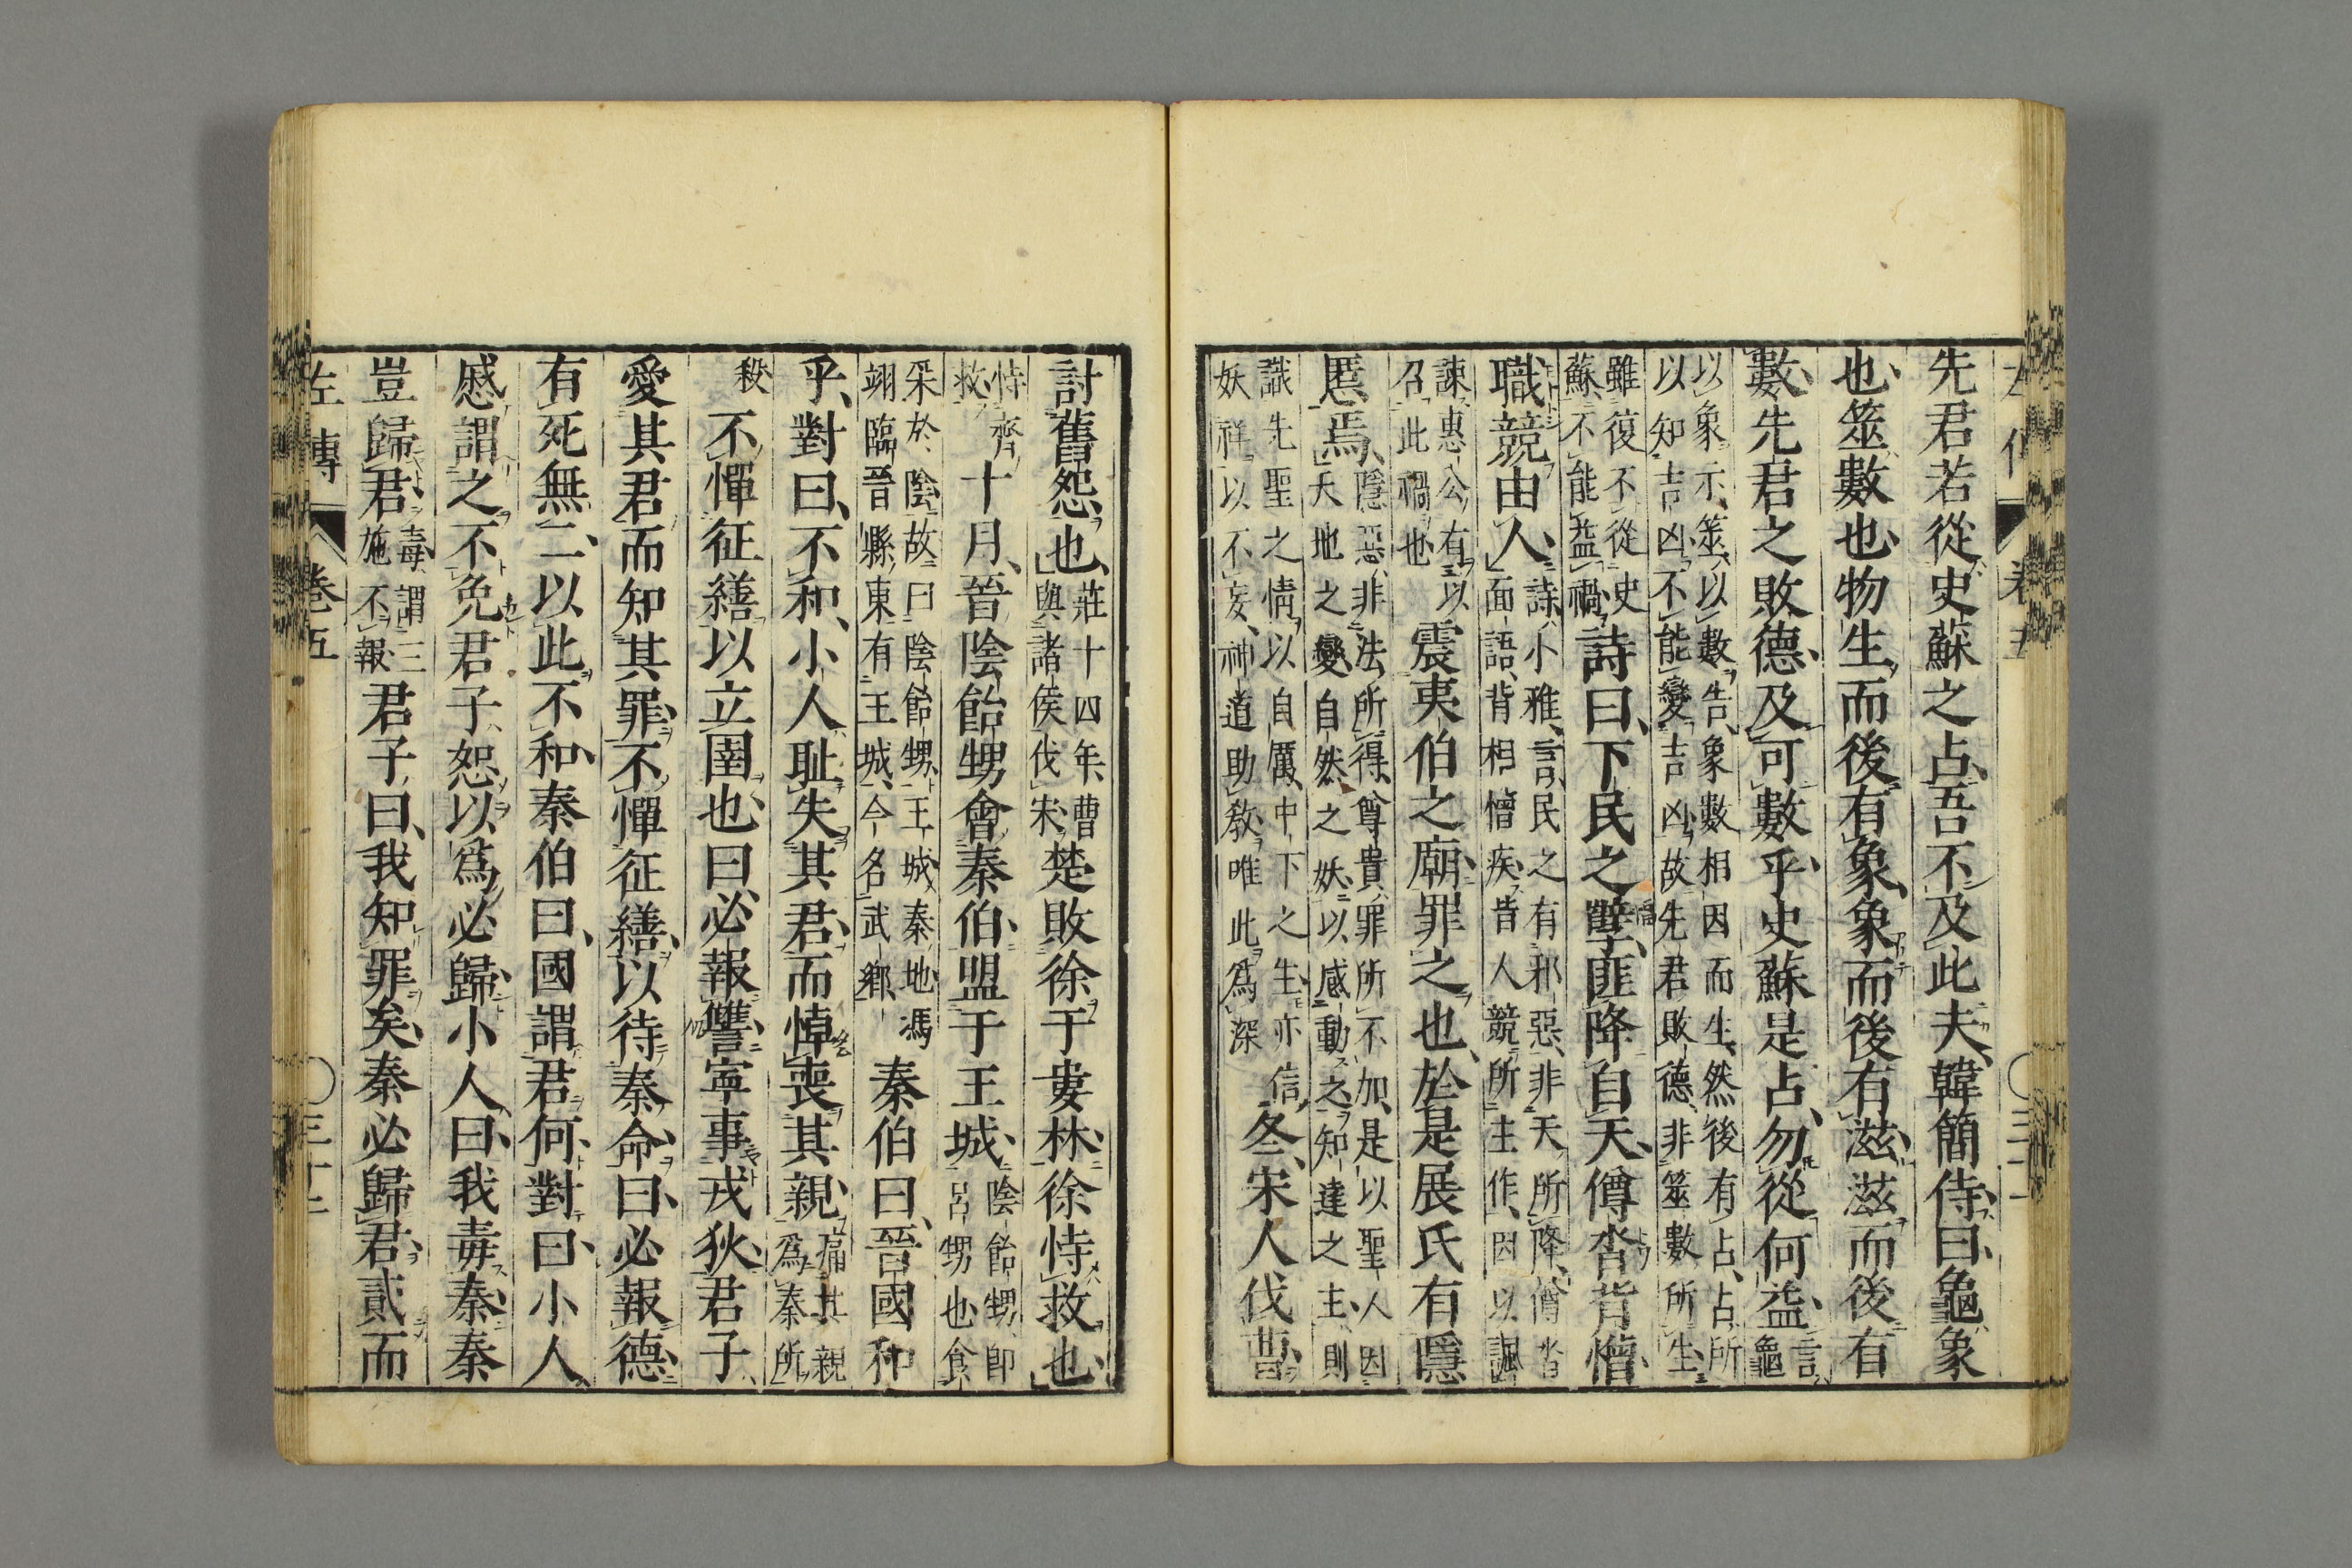 先君若從史蘇之占、吾不及此夫、韓簡侍、曰、龜象
也、筮數也、物生而後有象、象而後有滋、滋而後有
數、先君之敗德、及可數乎、史蘇是占、勿從何益、言龜
以象示、筮以數告、象數相因而生、然後有占、占所
以知吉凶、不能變吉凶、故先君敗德、非筮數所生、
雖復不從史
蘇不能益禍、
詩曰、下民之孼、匪降自天、僔沓背憎、
職競由人、
詩小雅、言民之有邪惡、非天所降、僔沓
面語、背相憎疾、皆人競所主作、因以諷
諫惠公有以
召此禍也
震夷伯之廟、罪之也、於是展氏有隱
慝焉、
隱惡、非法所得、尊貴、罪所不加、是以聖人因
天地之變、自然之妖、以感動之、知達之主、則
識先聖之情、以自厲、中下之主、亦信
妖祥、以不妄、神道助敎、唯此爲深
冬、宋人伐曹、
討舊怨也、
莊十四年、曹
與諸侯伐宋、
楚敗徐于婁林、徐恃救也、
恃齊
救、
十月、晉陰飴甥會秦伯、盟于王城、
陰飴甥、卽
呂甥也、食
采於陰、故曰陰飴甥、王城、秦地、馮
翊臨晉縣東有王城、今名武鄕、
秦伯曰、晉國和
乎、對曰、不和、小人耻失其君、而悼喪其親、
痛其親
爲秦所
殺
不憚征繕、以立圉也、曰、必報讐、寧事戎狄、君子
愛其君、而知其罪、不憚征繕、以待秦命、曰、必報德、
有死無二、以此不和、秦伯曰、國謂君何、對曰、小人
慼謂之不免、君子恕以爲必歸、小人曰、我毒秦、秦
豈歸君、
毒謂三
施不報
君子曰、我知罪矣、秦必歸君、貳而
左傳 卷五